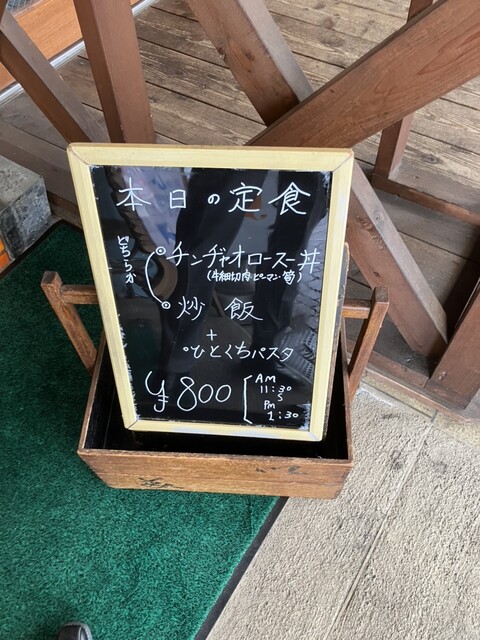 本日の定食
どちらか
チンヂャオロースー丼
(牛細切肉ピーマン筍)
炒飯
+
ひとくちパスタ
¥800
AM
11:30
〜
PM
1:30